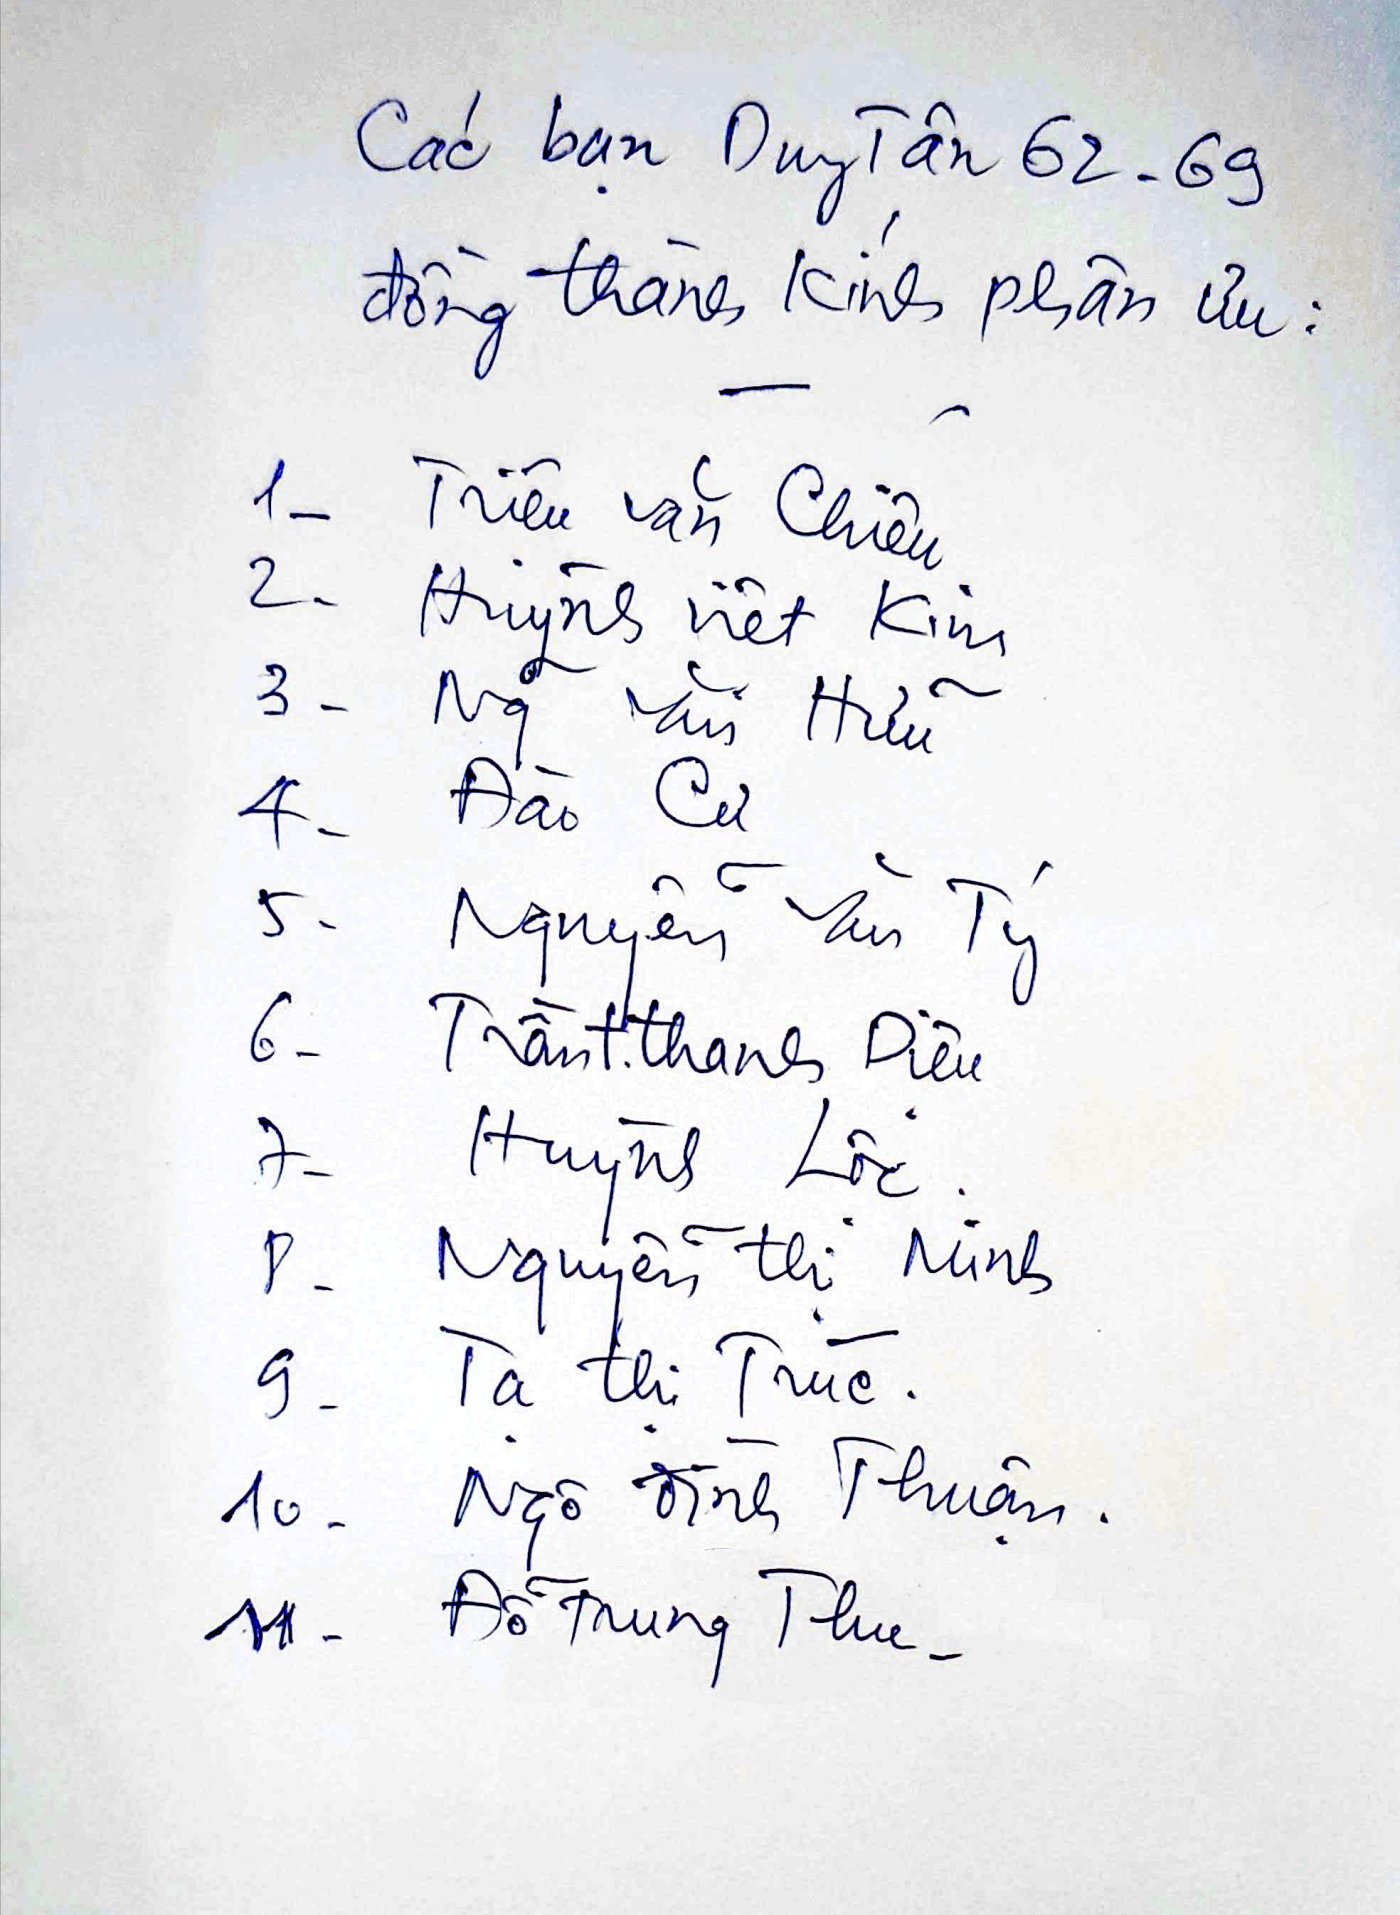 Các bạn Duy Tân 62-69
đồng thành Kính phân ưu:
1- Triều văn Chiêu
2- Huỳnh việt Kim
3- Ng~ văn Hữu
4- Đào Cư
5- Nguyễn văn Tý
6- Trần t. thanh Diệu
7- Huỳnh Lộc.
8- Nguyễn thị Ninh
9- Tạ thị Trúc.
10- Ngô đình Thuận.
11- Đỗ Trung Thu-